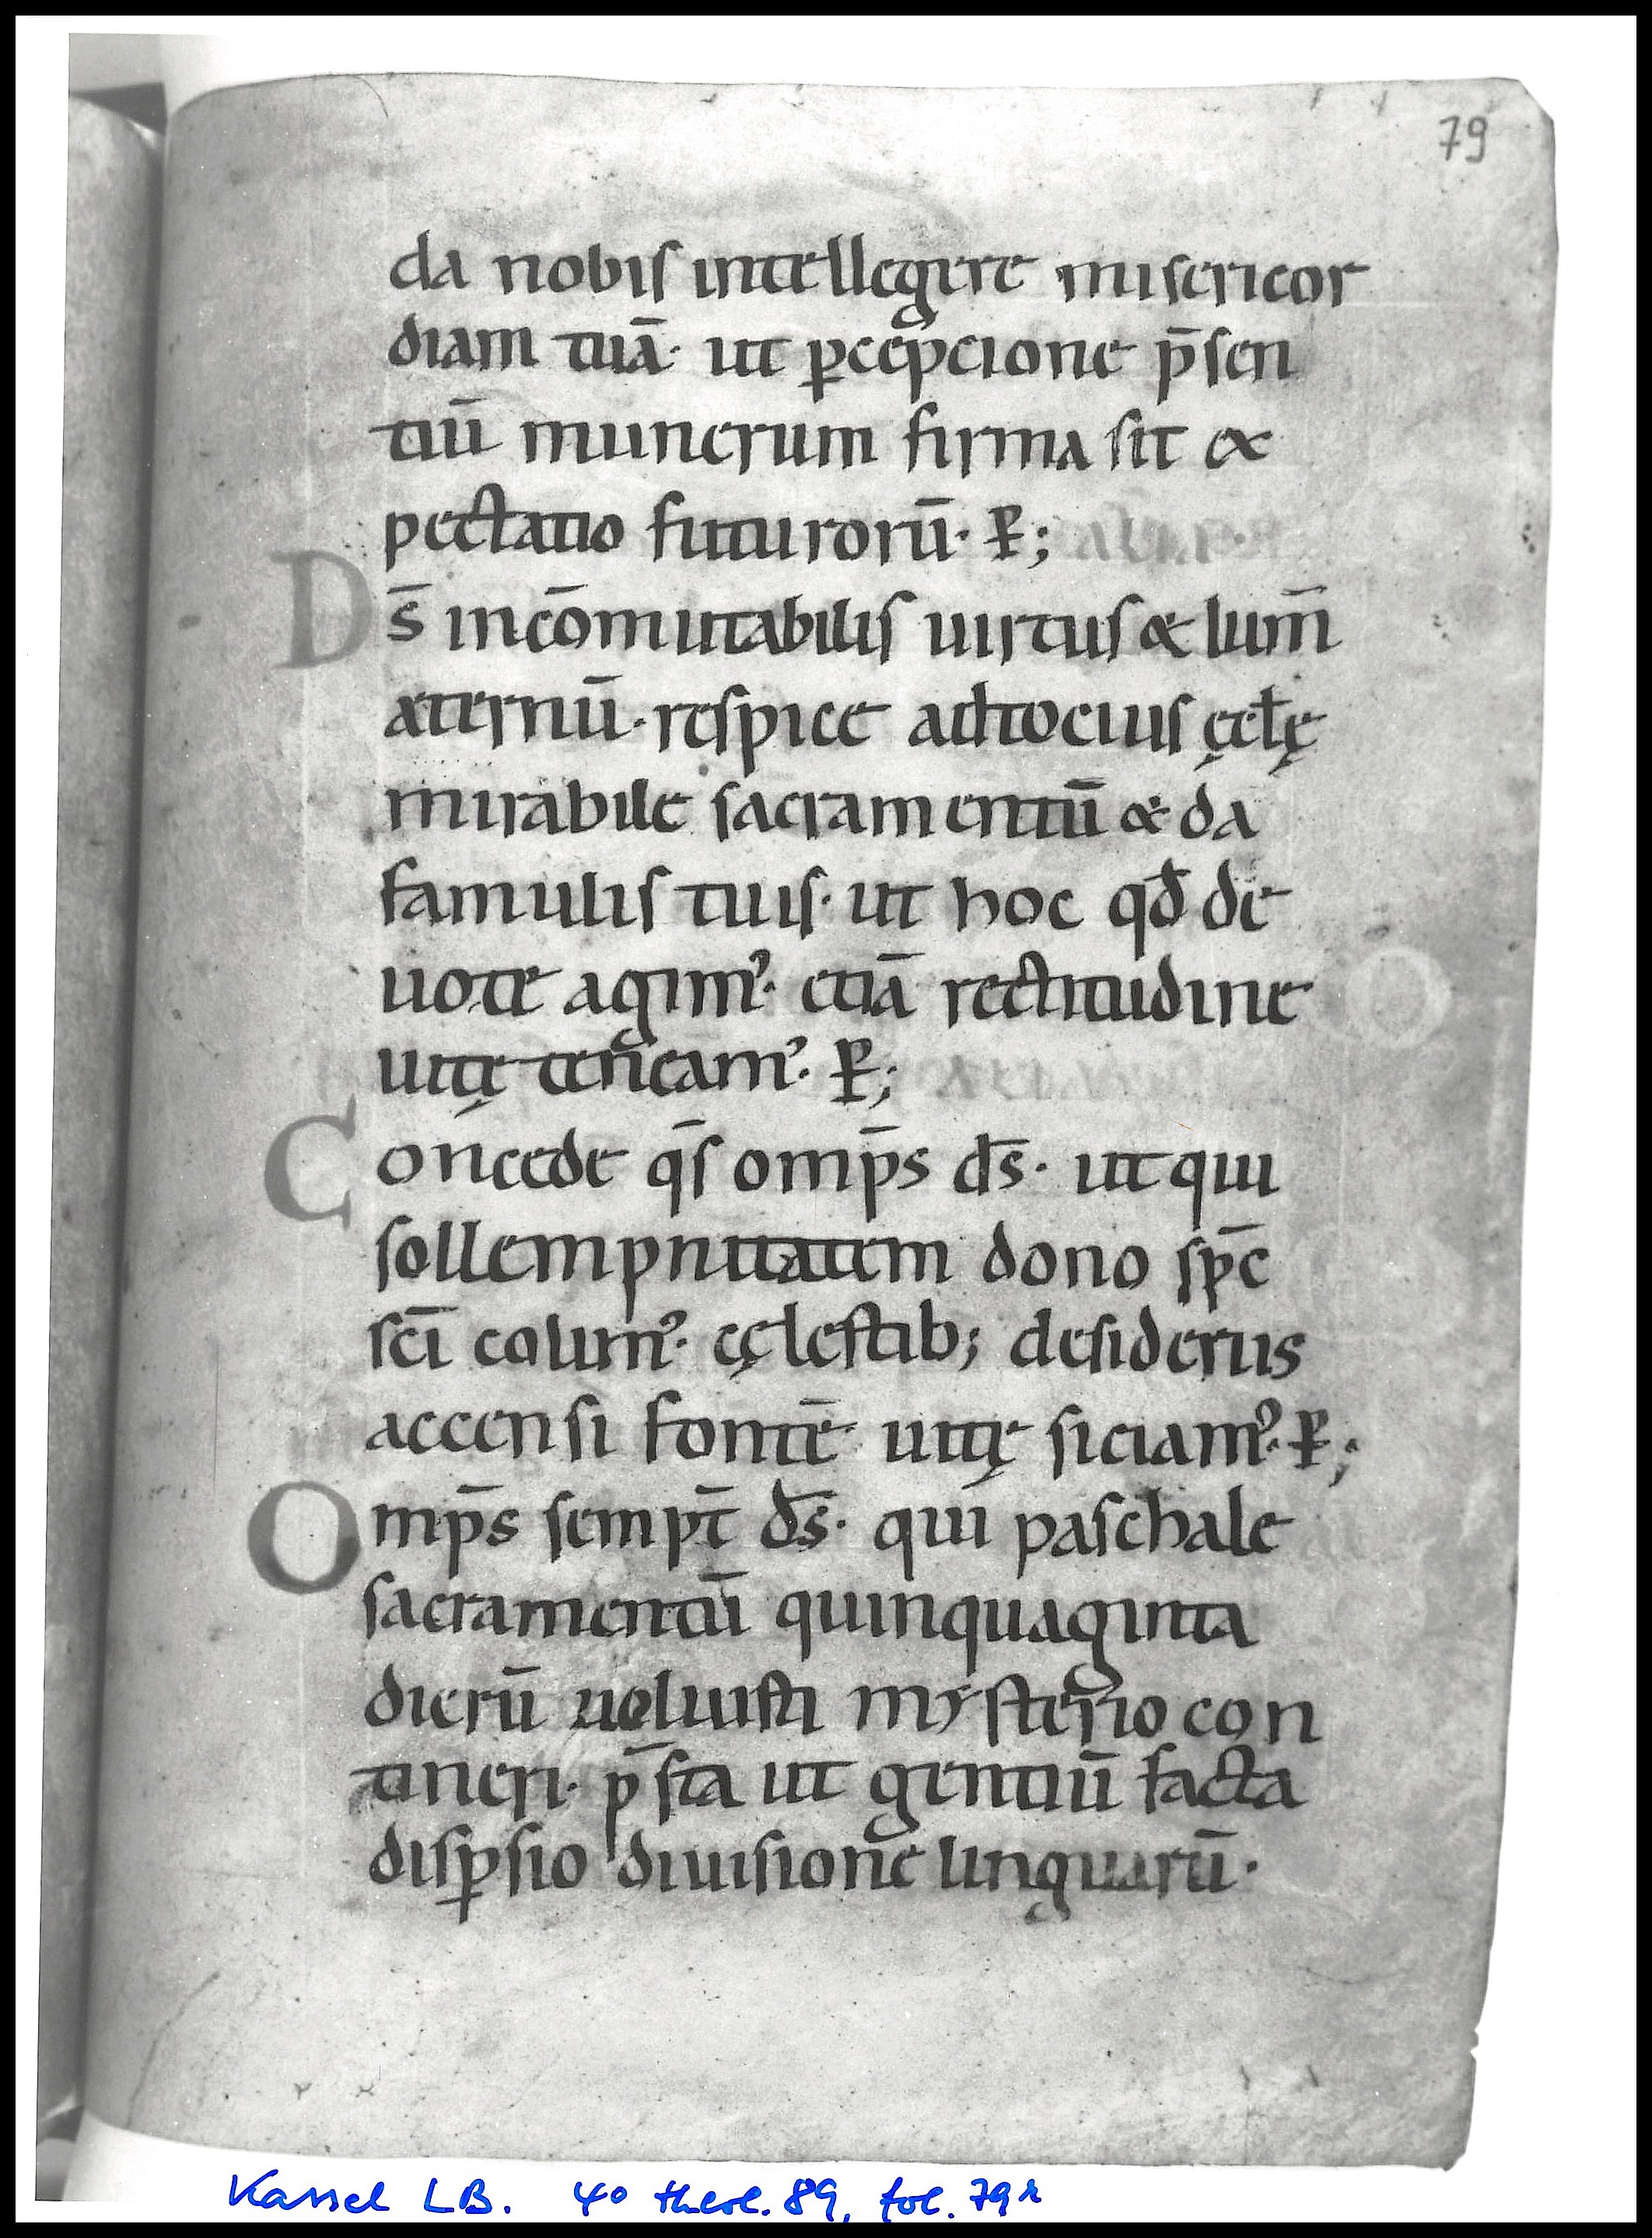 79
da nobis intellegere misericor
diam tuā· ut ꝑcepcione p̄sen
tiū munerum firma sit ex
pectatio futurorū· ꝑ;
Ds̄ incōmutabilis uirtus & lum̄
æternū· respice ad tocius ęcłę
mirabile sacramentū & da
famulis tuis· ut hoc qđ de
uote agim᾿· etiā rectitudine
uitę teneam᾿· ꝑ;
Concede q̄s omp̄s ds̄· ut qui
sollempnitatem dono sp̄c
sc̄i colim᾿· cęlestib; desideriis
accensi fontē uitę siciam᾿· ꝑ;
Omp̄s sempt̄ ds̄· qui paschale
sacramentū quinquaginta
dierū uoluisti mysterio con
tineri· p̄sta ut gentiū facta
disꝑsio diuisione linguarū·
Kassel LB. 4° theol. 89, fol. 79r